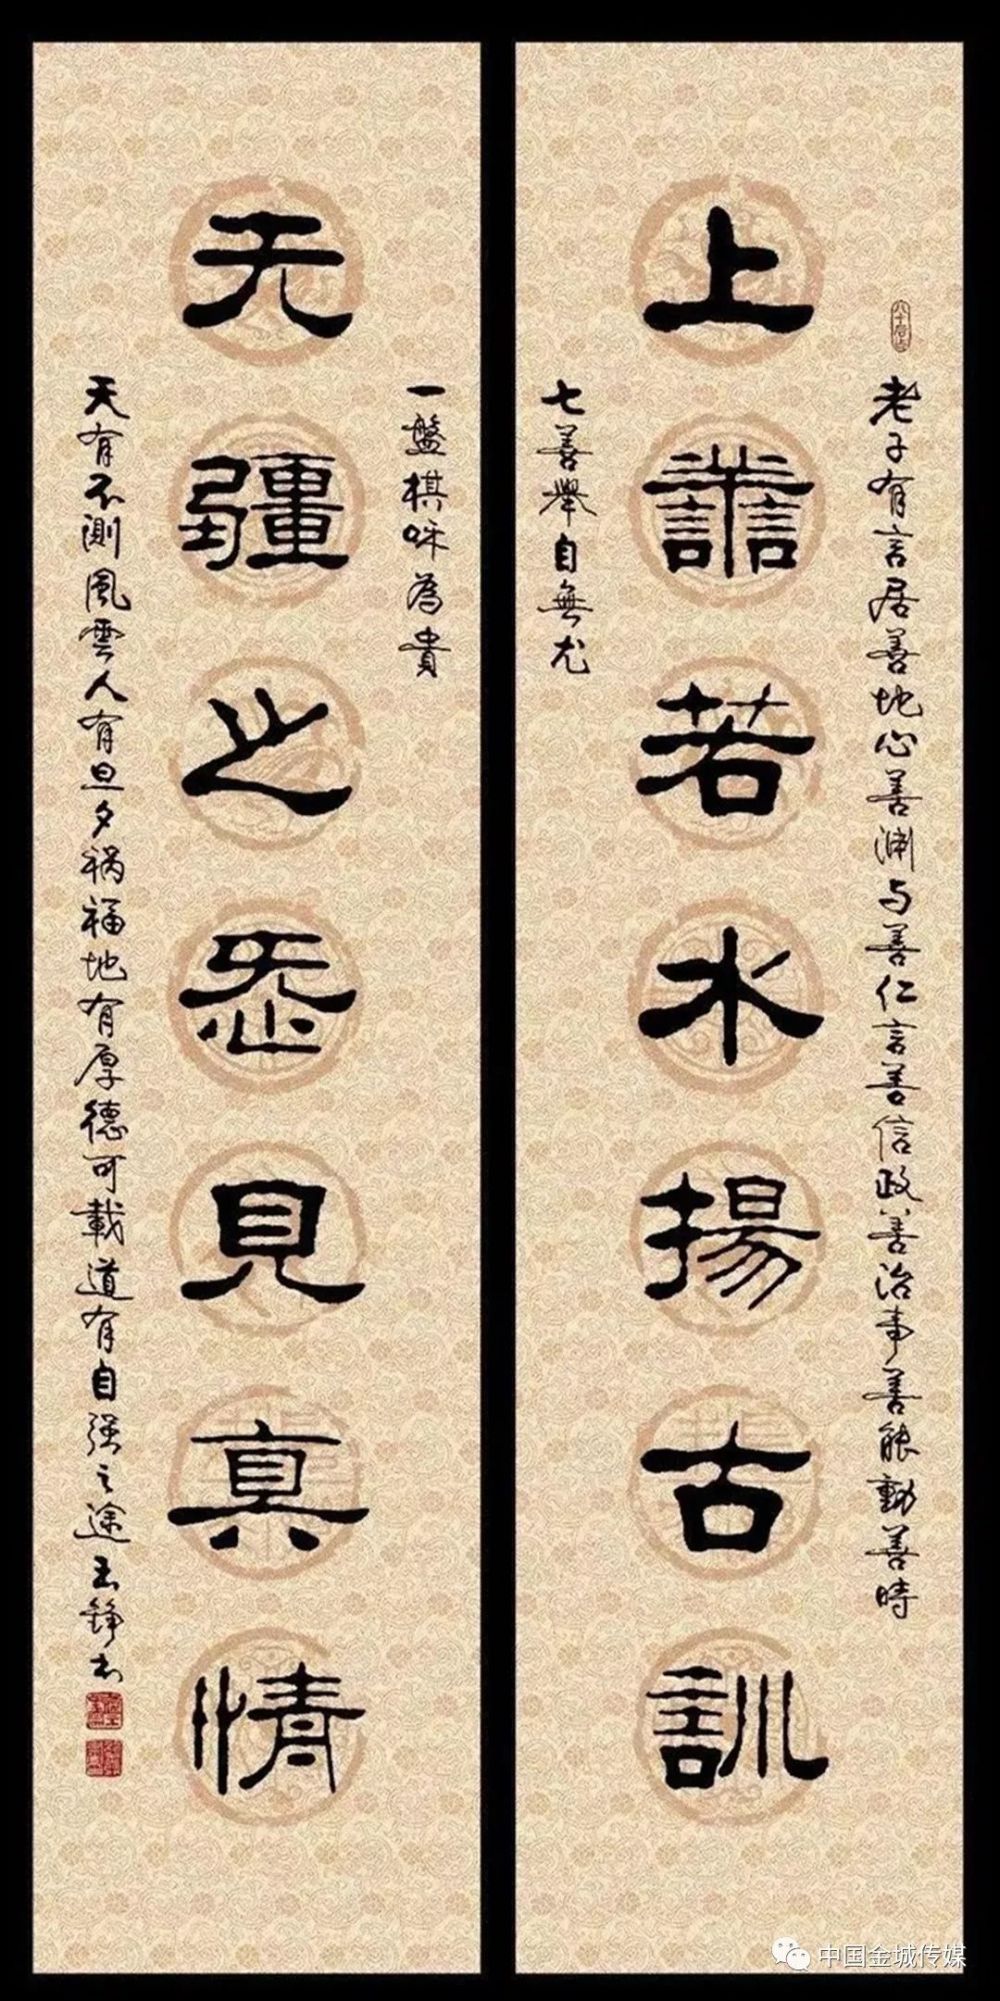 老子有言居善地心善渊与善仁言善信政善治事善能動善時
上譱若水揚古訓
七善舉自無尤
一盤棋咊為貴
无疆之㤅見真情
天有不測風雲人有旦夕祸福地有厚德可載道有自强之途
中国金城传媒